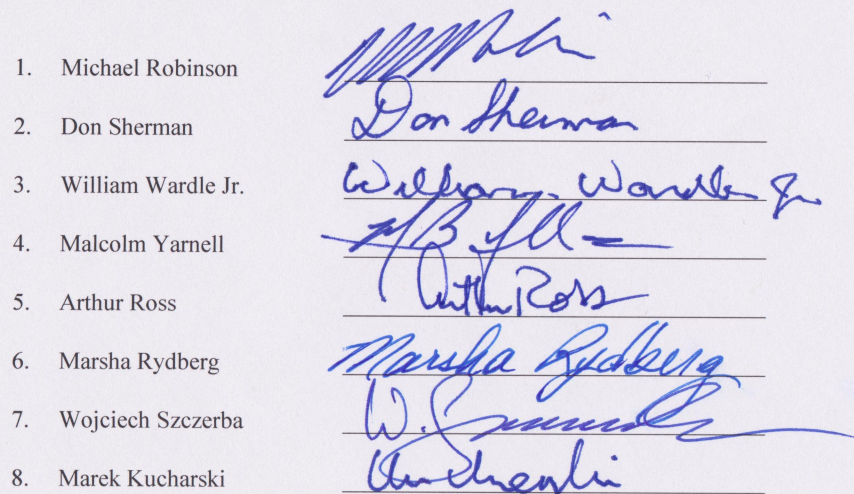 1. Michael Robinson
2. Don Sherman Don Sherman
3. William Wardle Jr. William Wardle Jr.
4. Malcolm Yarnell
5. Arthur Ross Arthur Ross
6. Marsha Rydberg Marsha Rydberg
7. Wojciech Szczerba W.
8. Marek Kucharski